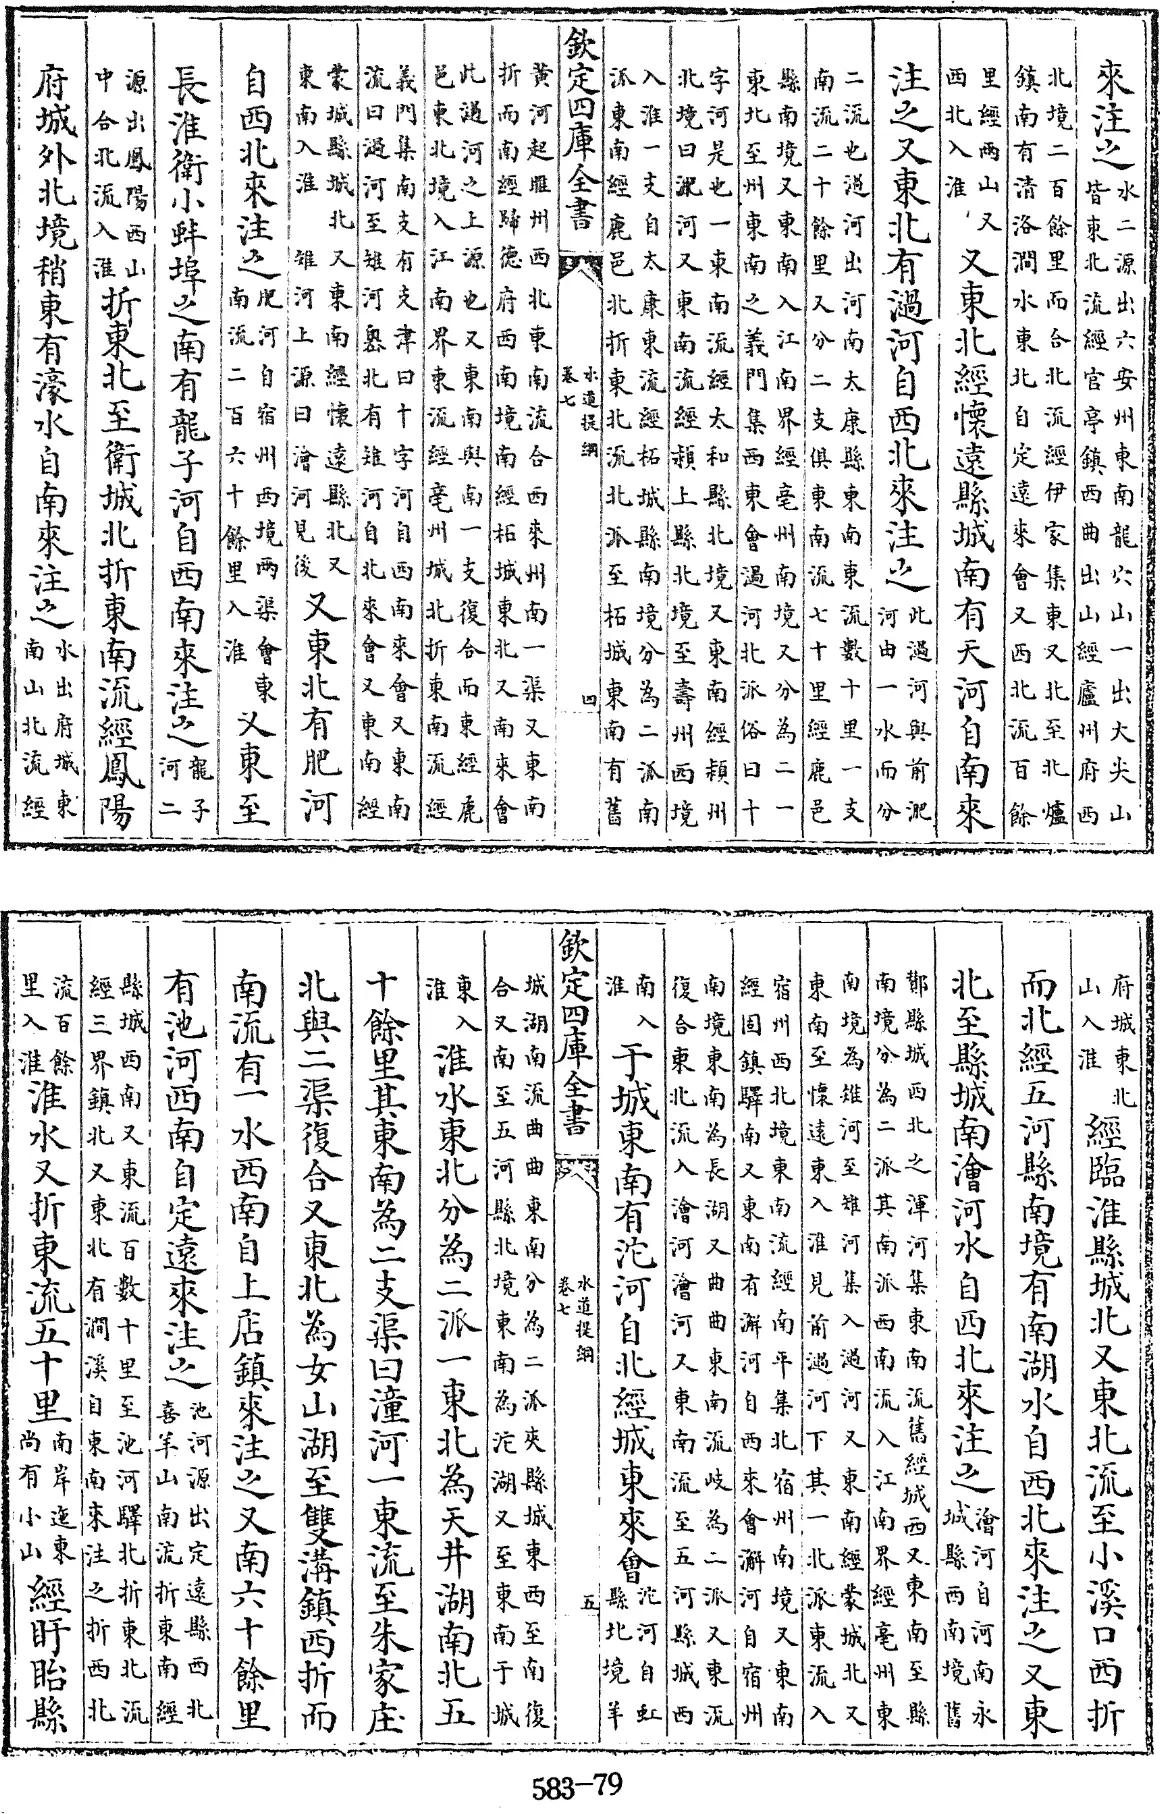 來注之水二源出六安州東南龍穴山一出大尖山
皆東北流經官亭鎮西曲出山經廬州府西
北境二百餘里而合北流經伊家集東又北至北爐
鎮南有清洛澗水東北自定遠來會又西北流百餘
里經兩山又
西北入淮
又東北經懷遠縣城南有天河自南來
注之又東北有濄河自西北來注之此濄河與前淝
河由一水而分
二流也濄河出河南太康縣東南東流數十里一支
南流二十餘里又分二支俱東南流七十里經鹿邑
縣南境又東南入江南界經亳州南境又分為二一
東北至州東南之義門集西東會濄河北派俗曰十
字河是也一東南流經太和縣北境又東南經潁州
北境曰淝河又東南流經潁上縣北境至壽州西境
入淮一支自太康東流經柘城縣南境分為二派南
派東南經鹿邑北折東北流北派至柘城東南有舊
欽定四庫全書
水道提綱
卷七
四
黃河起睢州西北東南流合西來州南一渠又東南
折而南經歸德府西南境南經柘城東北又南來會
此濄河之上源也又東南與南一支復合而東經鹿
邑東北境入江南界東流經亳州城北折東南流經
義門集南支有支津曰十字河自西南來會又東南
流曰濄河至雉河集北有雉河自北來會又東南經
蒙城縣城北又東南經懷遠縣北又
東南入淮 雉河上源曰澮河見後
又東北有肥河
自西北來注之肥河自宿州西境兩渠會東
南流二百六十餘里入淮
又東至
長淮衛小蚌埠之南有龍子河自西南來注之龍子
河二
源出鳳陽西山
中合北流入淮
折東北至衛城北折東南流經鳳陽
府城外北境稍東有濠水自南來注之水出府城東
南山北流經
府城東北
山入淮
經臨淮縣城北又東北流至小溪口西折
而北經五河縣南境有南湖水自西北來注之又東
北至縣城南澮河水自西北來注之澮河自河南永
城縣西南境舊
酇縣城西北之渾河集東南流舊經城西又東南至縣
南境分為二派其南派西南流入江南界經亳州東
南境為雉河至雉河集入濄河又東南經蒙城北又
東南至懷遠東入淮見前濄河下其一北派東流入
宿州西北境東南流經南平集北宿州南境又東南
經固鎮驛南又東南有澥河自西來會澥河自宿州
南境東南為長湖又曲曲東南流岐為二派又東流
復合東北流入澮河澮河又東南流至五河縣城西
南入
淮
于城東南有沱河自北經城東來會沱河自虹
縣北境羊
欽定四庫全書
水道提綱
卷七
五
城湖南流曲曲東南分為二派夾縣城東西至南復
合又南至五河縣北境東南為沱湖又至東南于城
東入
淮
淮水東北分為二派一東北為天井湖南北五
十餘里其東南為二支渠曰潼河一東流至朱家庄
北與二渠復合又東北為女山湖至雙溝鎮西折而
南流有一水西南自上店鎮來注之又南六十餘里
有池河西南自定遠來注之池河源出定遠縣西北
喜羊山南流折東南經
縣城西南又東流百數十里至池河驛北折東北流
經三界鎮北又東北有澗溪自東南來注之折西北
流百餘
里入淮
淮水又折東流五十里南岸迤東
尚有小山
經盱眙縣
583-79